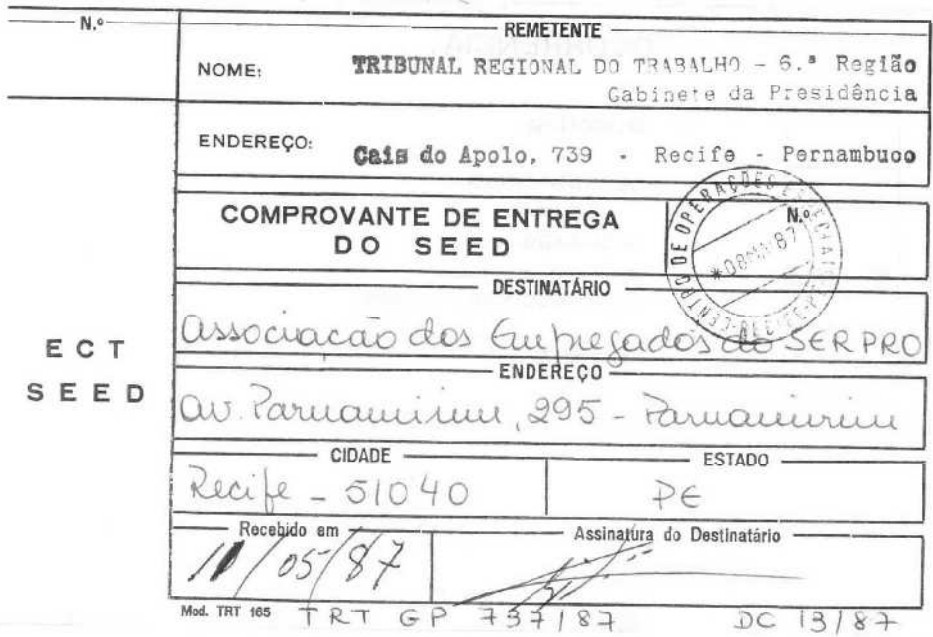 N.º
REMETENTE
NOME: TRIBUNAL REGIONAL DO TRABALHO - 6.ª Região
Gabinete da Presidência
ENDEREÇO: Cais do Apolo, 739 - Recife - Pernambuco
COMPROVANTE DE ENTREGA
DO SEED
N.º
CENTRO DE OPERAÇÕES ESPECIAIS
*08MAI87
DESTINATÁRIO
Associacão dos Empregados do SERPRO
ECT
SEED
ENDEREÇO
av. Parnamirim, 295 - Parnamirim
CIDADE
ESTADO
Recife - 51040
PE
Recebido em
Assinatura do Destinatário
11/05/87
Mod. TRT 165
TRT GP 737/87
DC 13/87